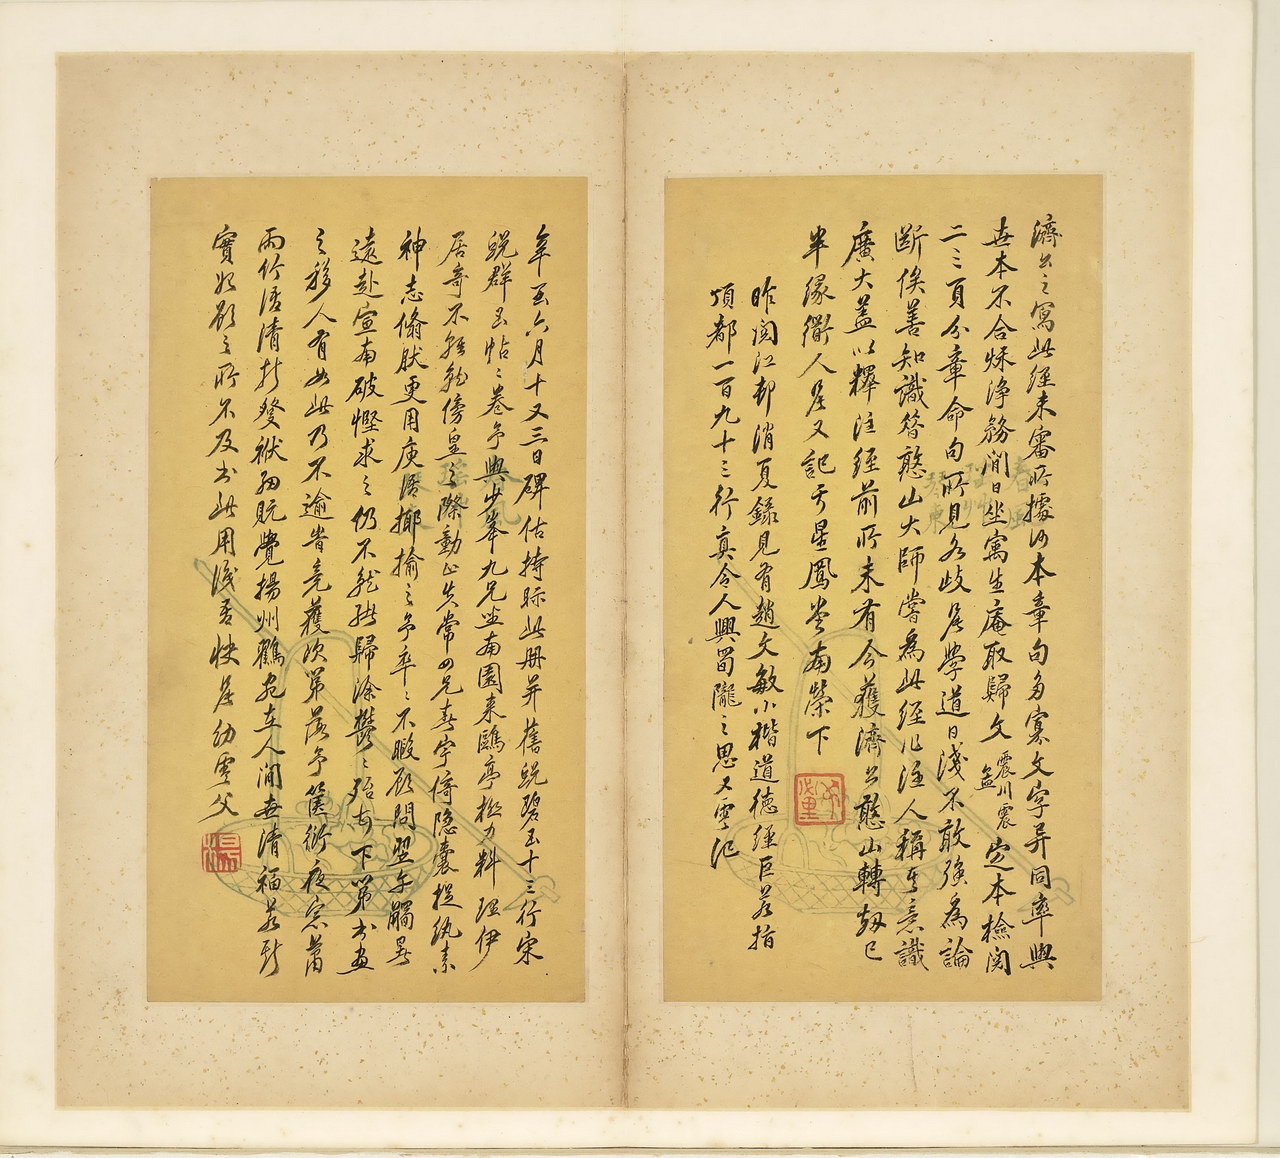 濟公之寫此經未審所據何本章句多寡文字异同率與
世本不合稣淨務閒日坐寫生庵取歸文震川震孟定本檢閱
二三頁分章命句所見各歧居學道日淺不敢強為論
斷俟善知識答憨山大師嘗為此經作注人稱其意識
廣大蓋以釋注經前所未有今獲濟公憨山轉劫已
半緣衢人居又記于星鳳堂南榮下
昨閱江邨消夏錄見有趙文敏小楷道德經巨若指
頂都一百九十三行真令人興蜀隴之思又雩记
六月十又三日碑估持眎此冊并舊蛻碧玉十三行宋
蛻群玉帖二卷予與少峯九兄坐南園來鷗亭極力料理伊
居奇不輕於傍皇之際動止失常四兄春宇倚隱囊捉紈素
神志翛肰更用庾語揶揄之予卒卒不暇顧問翌午觸暑
遠赴宣南破慳求之仍不能歸涂鬱鬱殆甚下第書畫
之移人有如此乃不逾昔竟獲次第落予篋衍夜窓蕭
雨竹活清於發袱細眡覺揚州鶴宛在人間世清福若斯
實始願之所不及书此用識吾快居幼雩父